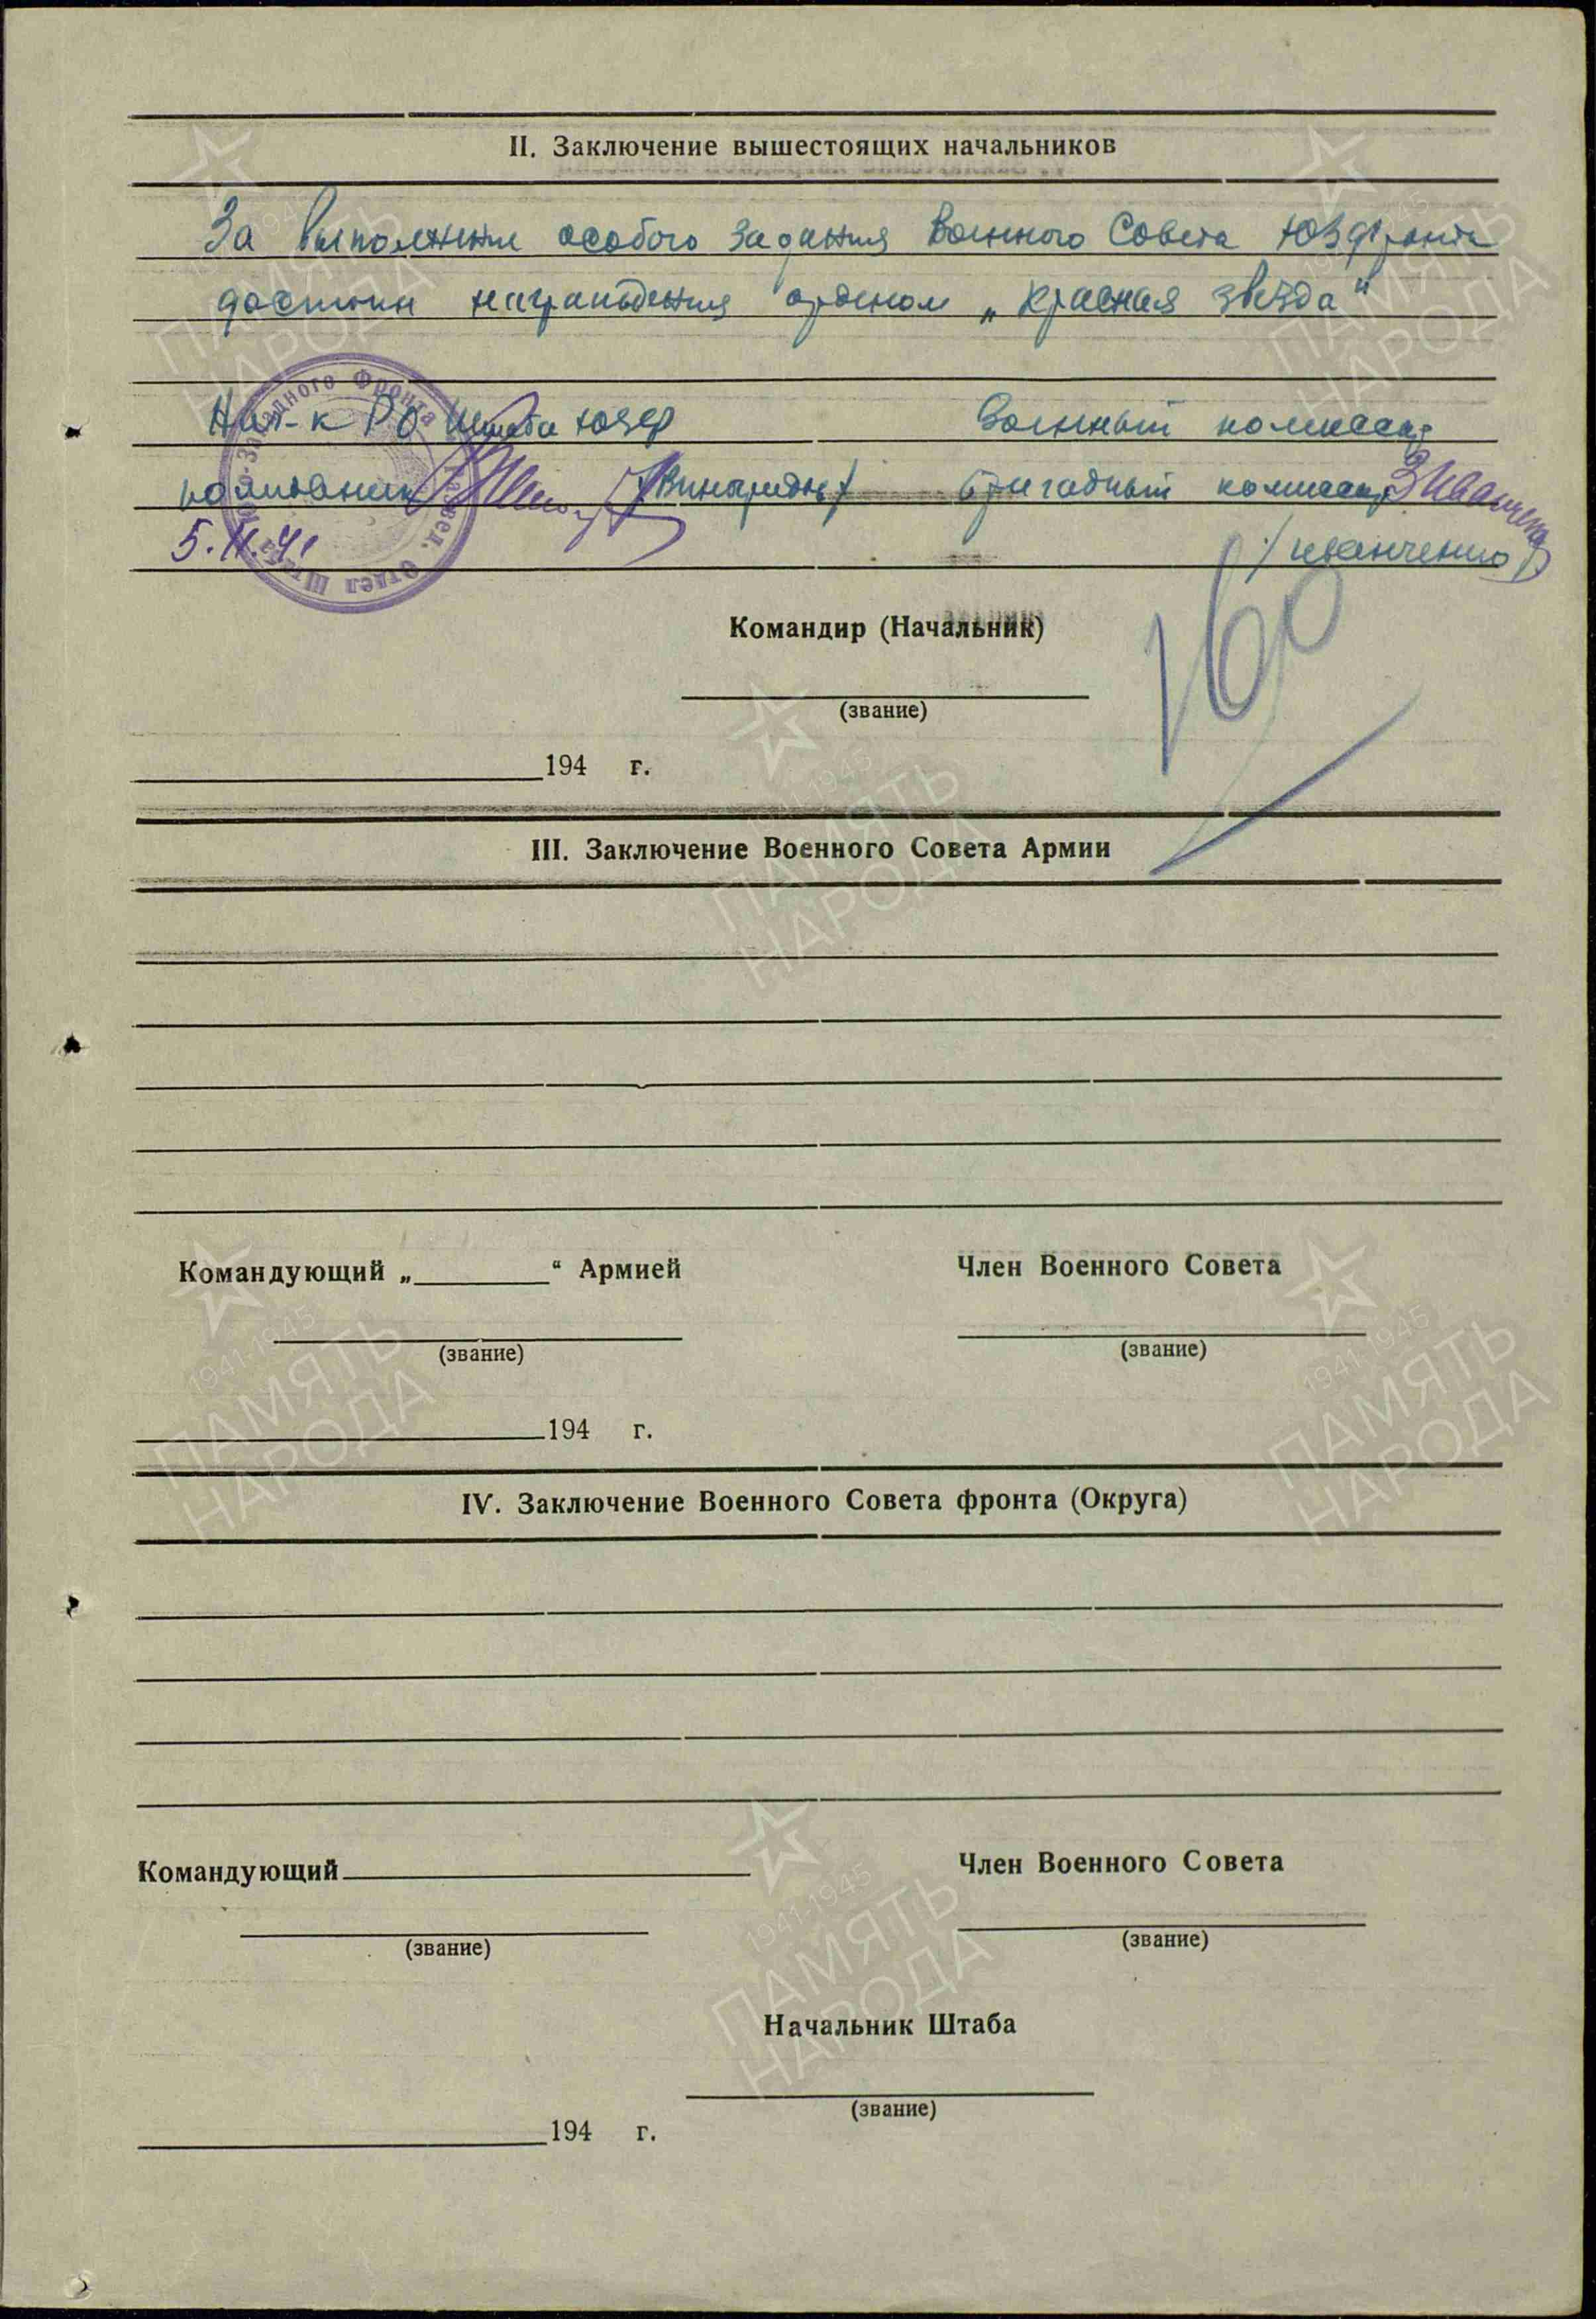 II. Заключение вышестоящих начальников
За выполнение особого задания Военного Совета ЮЗфронта
достоин награждения орденом „Красная звезда"
Нач-к РО Штаба ЮЗФ Военный комиссар
полковник /Виноградов/ бригадный комиссар ЗИванченко
5.11.41 /Иванченко/
Юго-Западного Фронта Развед. Отдел Штаба
160
Командир (Начальник)
(звание)
194 г.
III. Заключение Военного Совета Армии
Командующий „ " Армией Член Военного Совета
(звание) (звание)
194 г.
IV. Заключение Военного Совета фронта (Округа)
Командующий Член Военного Совета
(звание) (звание)
Начальник Штаба
(звание)
194 г.
1941-1945
ПАМЯТЬ
НАРОДА